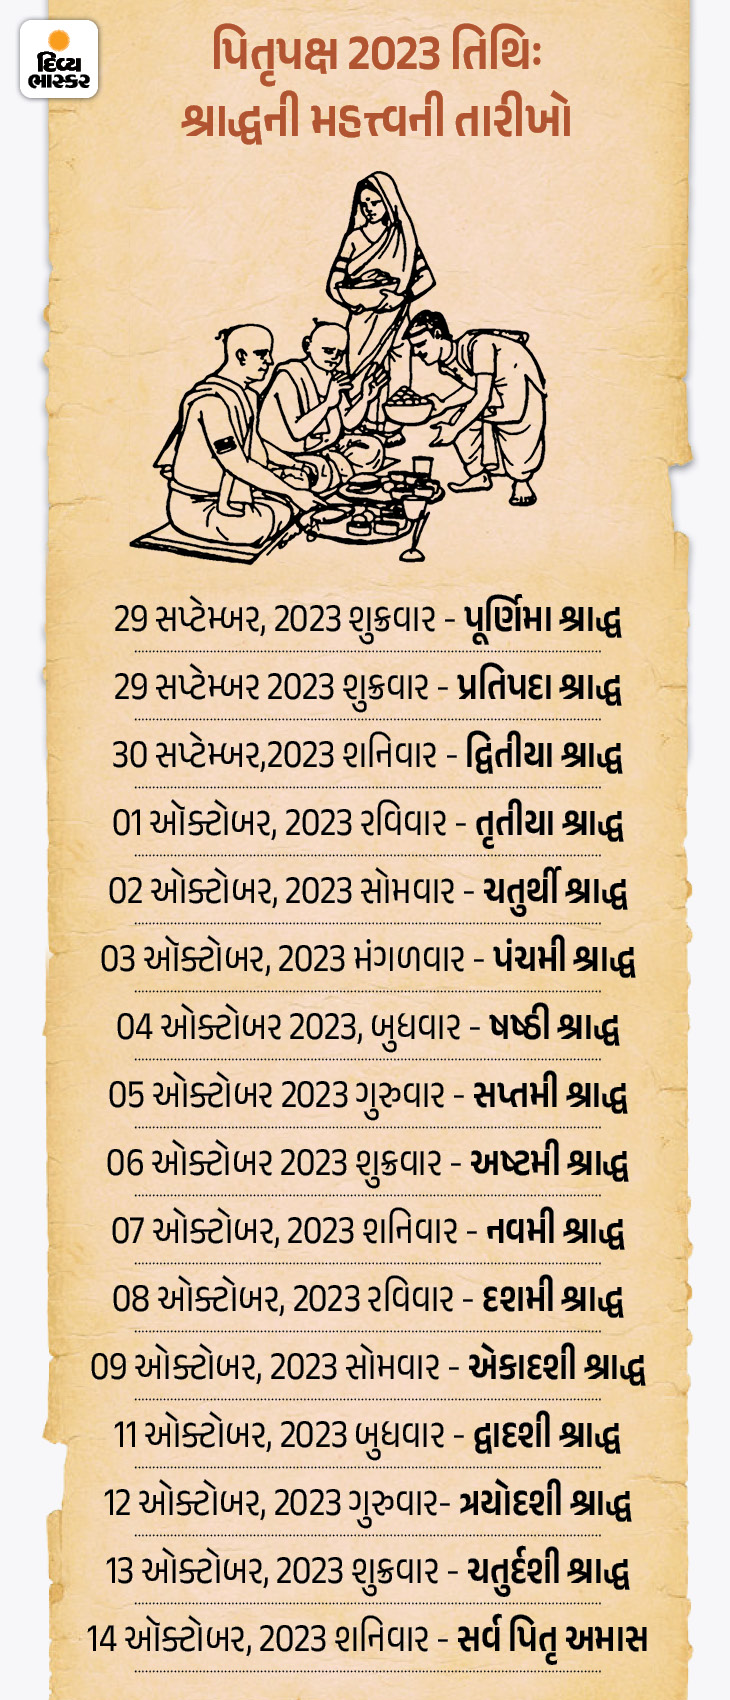 દિવ્ય
ભાસ્કર
પિતૃપક્ષ 2023 તિથિઃ
શ્રાદ્ધની મહત્ત્વની તારીખો
29 સપ્ટેમ્બર, 2023 શુક્રવાર - પૂર્ણિમા શ્રાદ્ધ
29 સપ્ટેમ્બર 2023 શુક્રવાર - પ્રતિપદા શ્રાદ્ધ
30 સપ્ટેમ્બર,2023 શનિવાર - દ્વિતીયા શ્રાદ્ધ
01 ઑક્ટોબર, 2023 રવિવાર - તૃતીયા શ્રાદ્ધ
02 ઓક્ટોબર, 2023 સોમવાર - ચતુર્થી શ્રાદ્ધ
03 ઑક્ટોબર, 2023 મંગળવાર - પંચમી શ્રાદ્ધ
04 ઓક્ટોબર 2023, બુધવાર - ષષ્ઠી શ્રાદ્ધ
05 ઓક્ટોબર 2023 ગુરુવાર - સપ્તમી શ્રાદ્ધ
06 ઓક્ટોબર 2023 શુક્રવાર - અષ્ટમી શ્રાદ્ધ
07 ઓક્ટોબર, 2023 શનિવાર - નવમી શ્રાદ્ધ
08 ઓક્ટોબર, 2023 રવિવાર - દશમી શ્રાદ્ધ
09 ઓક્ટોબર, 2023 સોમવાર - એકાદશી શ્રાદ્ધ
11 ઓક્ટોબર, 2023 બુધવાર - દ્વાદશી શ્રાદ્ધ
12 ઓક્ટોબર, 2023 ગુરુવાર- ત્રયોદશી શ્રાદ્ધ
13 ઓક્ટોબર, 2023 શુક્રવાર - ચતુર્દશી શ્રાદ્ધ
14 ઑક્ટોબર, 2023 શનિવાર - સર્વ પિતૃ અમાસ